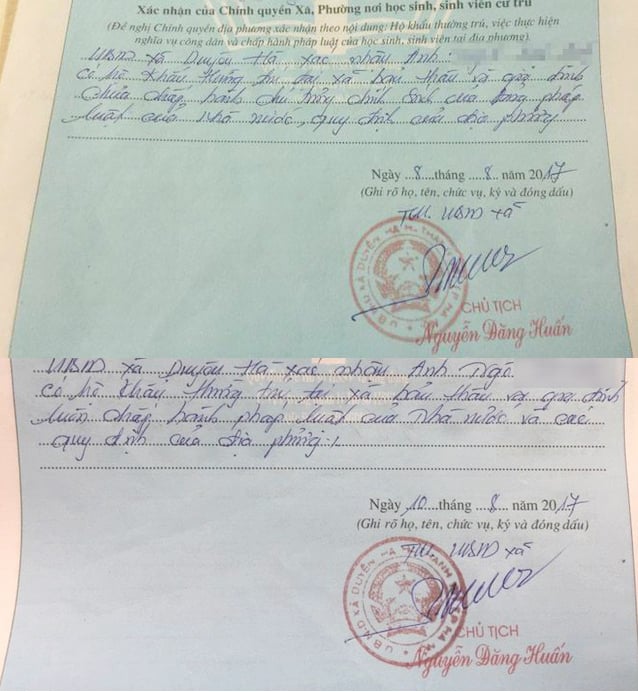 Xác nhận của Chính quyền Xã, Phường nơi học sinh, sinh viên cư trú
(Đề nghị Chính quyền địa phương xác nhận theo nội dung: Hộ khẩu thường trú, việc thực hiện
nghĩa vụ công dân và chấp hành pháp luật của học sinh, sinh viên tại địa phương).
UBND xã Duyên Hà xác nhận Anh:
có hộ khẩu thường trú tại xã bản thân và gia đình
chưa chấp hành chủ trương chính sách của Đảng pháp
luật của nhà nước, quy định của địa phương
Ngày 8 tháng 8 năm 2017
(Ghi rõ họ, tên, chức vụ, ký và đóng dấu)
TM. UBND xã
CHỦ TỊCH
Nguyễn Đăng Huấn
UBND xã Duyên Hà xác nhận Anh Ngô
có hộ khẩu thường trú tại xã bản thân và gia đình
luôn chấp hành pháp luật của Nhà nước và các
quy định của địa phương./.
Ngày 10 tháng 8 năm 2017
(Ghi rõ họ, tên, chức vụ, ký và đóng dấu)
TM. UBND xã
CHỦ TỊCH
Nguyễn Đăng Huấn